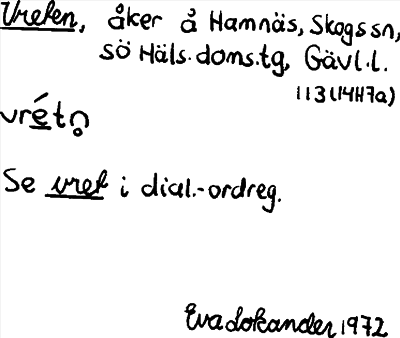 Vreten, åker å Hamnäs, Skogs sn,
sö Häls. doms.tg, Gävl.l.
113(14H7a)
vrét
Se vret i dial.-ordreg.
Eva Lokander 1972